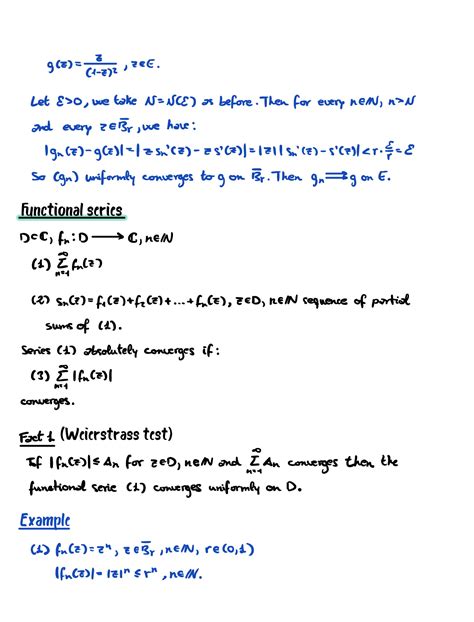 g(z) = z/(1-z)², z∈E.
Let ε>0, we take N=N(ε) as before. Then for every n∈ℕ, n>N
and every z∈B̅r, we have:
|gn(z)-g(z)|=|z sn'(z)-z s'(z)|=|z||sn'(z)-s'(z)|<r·ε/r=ε
So (gn) uniformly converges to g on B̅r. Then gn⇉g on E.
Functional series
D⊂ℂ, fn: D⟶ℂ, n∈ℕ
(1) ∑_{n=1}^{∞} fn(z)
(2) sn(z)=f1(z)+f2(z)+...+fn(z), z∈D, n∈ℕ sequence of partial
sums of (1).
Series (1) absolutely converges if:
(3) ∑_{n=1}^{∞} |fn(z)|
converges.
Fact 1 (Weierstrass test)
If |fn(z)|≤An for z∈D, n∈ℕ and ∑_{n=1}^{∞} An converges then the
functional serie (1) converges uniformly on D.
Example
(1) fn(z)=zⁿ, z∈B̅r, n∈ℕ, r∈(0,1)
|fn(z)|=|z|ⁿ≤rⁿ, n∈ℕ.